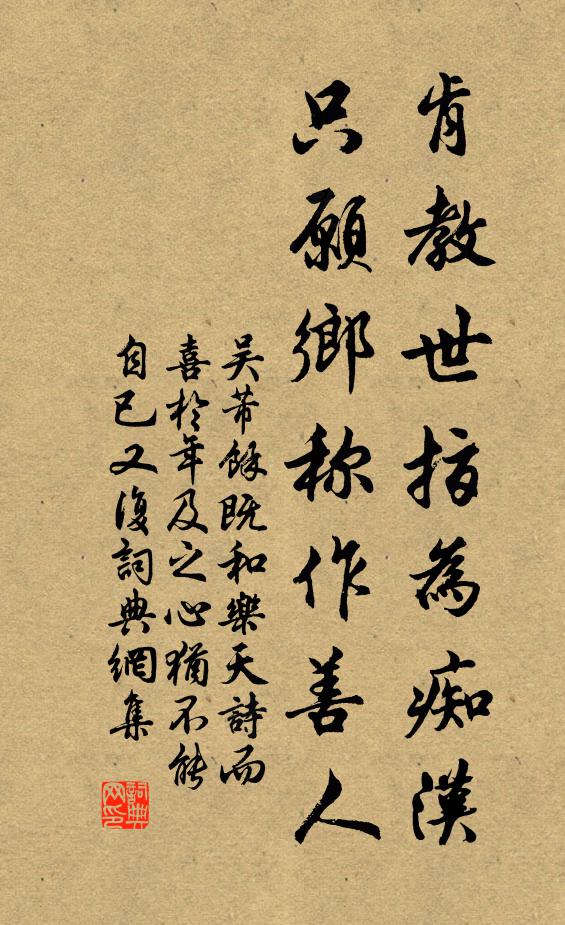 肯教世指為痴漢
只願鄉称作善人
吳芾餘既和樂天詩而
喜於年及之心猶不能
自已又復詞典網集
詞典
网印